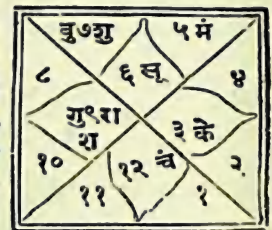 बु७शु ५ मं
६ सू
८ ४
गु९रा
श
३ के
१० १२ चं २
११ १